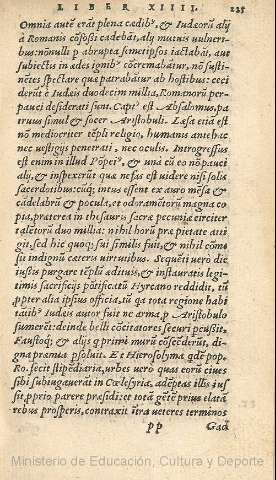 LIBER XIIII. 225
Omnia autē erāt plena cædib⁹, & Iudæorū alij
a Romanis cōfossi cadebāt, alij mutuis vulneri-
bus: nōnulli p abrupta semetipsos iactabāt, aut
subiectis in ædes ignib⁹ cōcremabātur, nō susti-
nētes spectare quæ patrabātur ab hostibus: ceci
derūt a Iudæis duodecim millia, Romanorū per-
pauci desiderati sunt. Capt⁹ est Absalomus, pa
truus simul & socer Aristobuli. Læsa etiā est
nō mediocriter tēpli religio, humanis antehac
nec vestigijs penetrati, nec oculis. Introgressus
est enim in illud Pōpei⁹, & unà cū eo nō pauci
alij, & inspexerūt quæ nefas est videre nisi solis
sacerdotibus: cūq; intus essent ex auro mēsa &
cādelabrū & pocula, et odoramētorū magna co
pia, præterea in thesauris sacræ pecuniæ circiter
talētorū duo millia: nihil horū præ pietate atti
git, sed hic quoq; sui similis fuit, & nihil cōmi
sit indignū cæteris virtutibus. Sequēti vero die
iussis purgare tēplū ædituis, & instauratis legi-
timis sacrificijs pōtificatū Hyrcano reddidit, tū
ꝓpter alia ipsius officia, tū qa tota regione habi
tātib⁹ Iudæis autor fuit ne arma p Aristobulo
sumerēt: deinde belli cōcitatores securi pcussit.
Faustoq; & alijs q primi murū cōscēderūt, di-
gna præmia psoluit. Et Hierosolyma qdē pop.
Ro. fecit stipēdiaria, urbes vero quas eorū ciues
sibi subiugauerāt in Cœlesyria, adēptas illis ius
sit ꝓprio parere præsidi: et totā gētē prius elatā
rebus prosperis, contraxit ītra veteres terminos
pp Gad
Ministerio de Educación, Cultura y Deporte